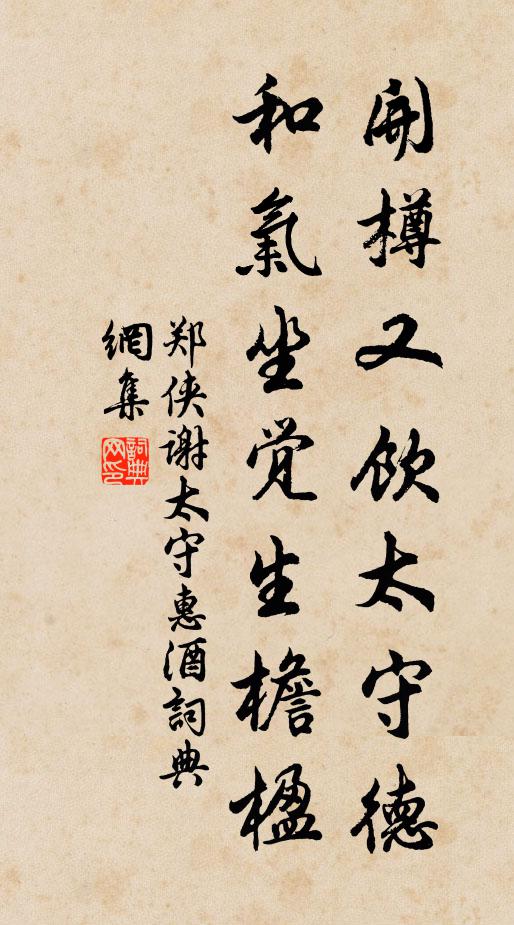 開樽又飲太守德
和氣坐觉生檐楹
郑侠谢太守惠酒詞典
網集
詞典網印